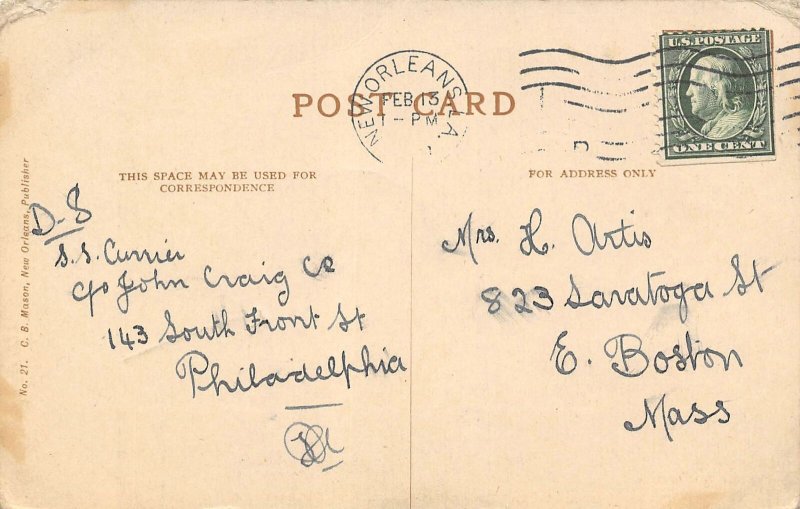 U.S. POSTAGE
ONE CENT
NEW ORLEANS, LA.
FEB 13
1 - PM
POST CARD
THIS SPACE MAY BE USED FOR
CORRESPONDENCE
FOR ADDRESS ONLY
No. 21. C. B. Mason, New Orleans, Publisher
D-8
S.S. Currier
c/o John Craig Co
143 South Front St
Philadelphia
Mrs. H. Artis
823 Saratoga St
E. Boston
Mass